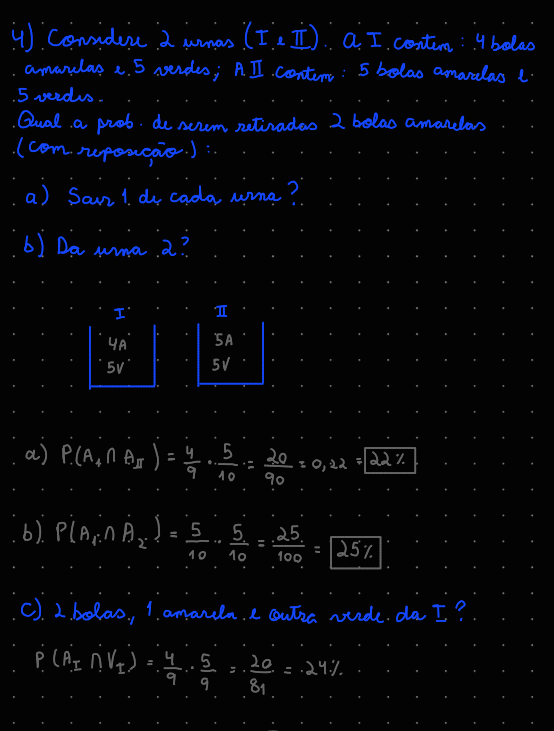 4) Considere 2 urnas (I e II). A I contem: 4 bolas
amarelas e 5 verdes; A II contem: 5 bolas amarelas e
5 verdes.
Qual a prob. de serem retiradas 2 bolas amarelas
(com reposição):
a) Sair 1 de cada urna?
b) Da urna 2?
I II
4A 5A
5V 5V
a) P(A₁ ∩ A_II) = 4/9 · 5/10 = 20/90 = 0,22 = 22%
b) P(A₁ ∩ A₂) = 5/10 · 5/10 = 25/100 = 25%
c) 2 bolas, 1 amarela e outra verde da I?
P(A_I ∩ V_I) = 4/9 · 5/9 = 20/81 = 24%